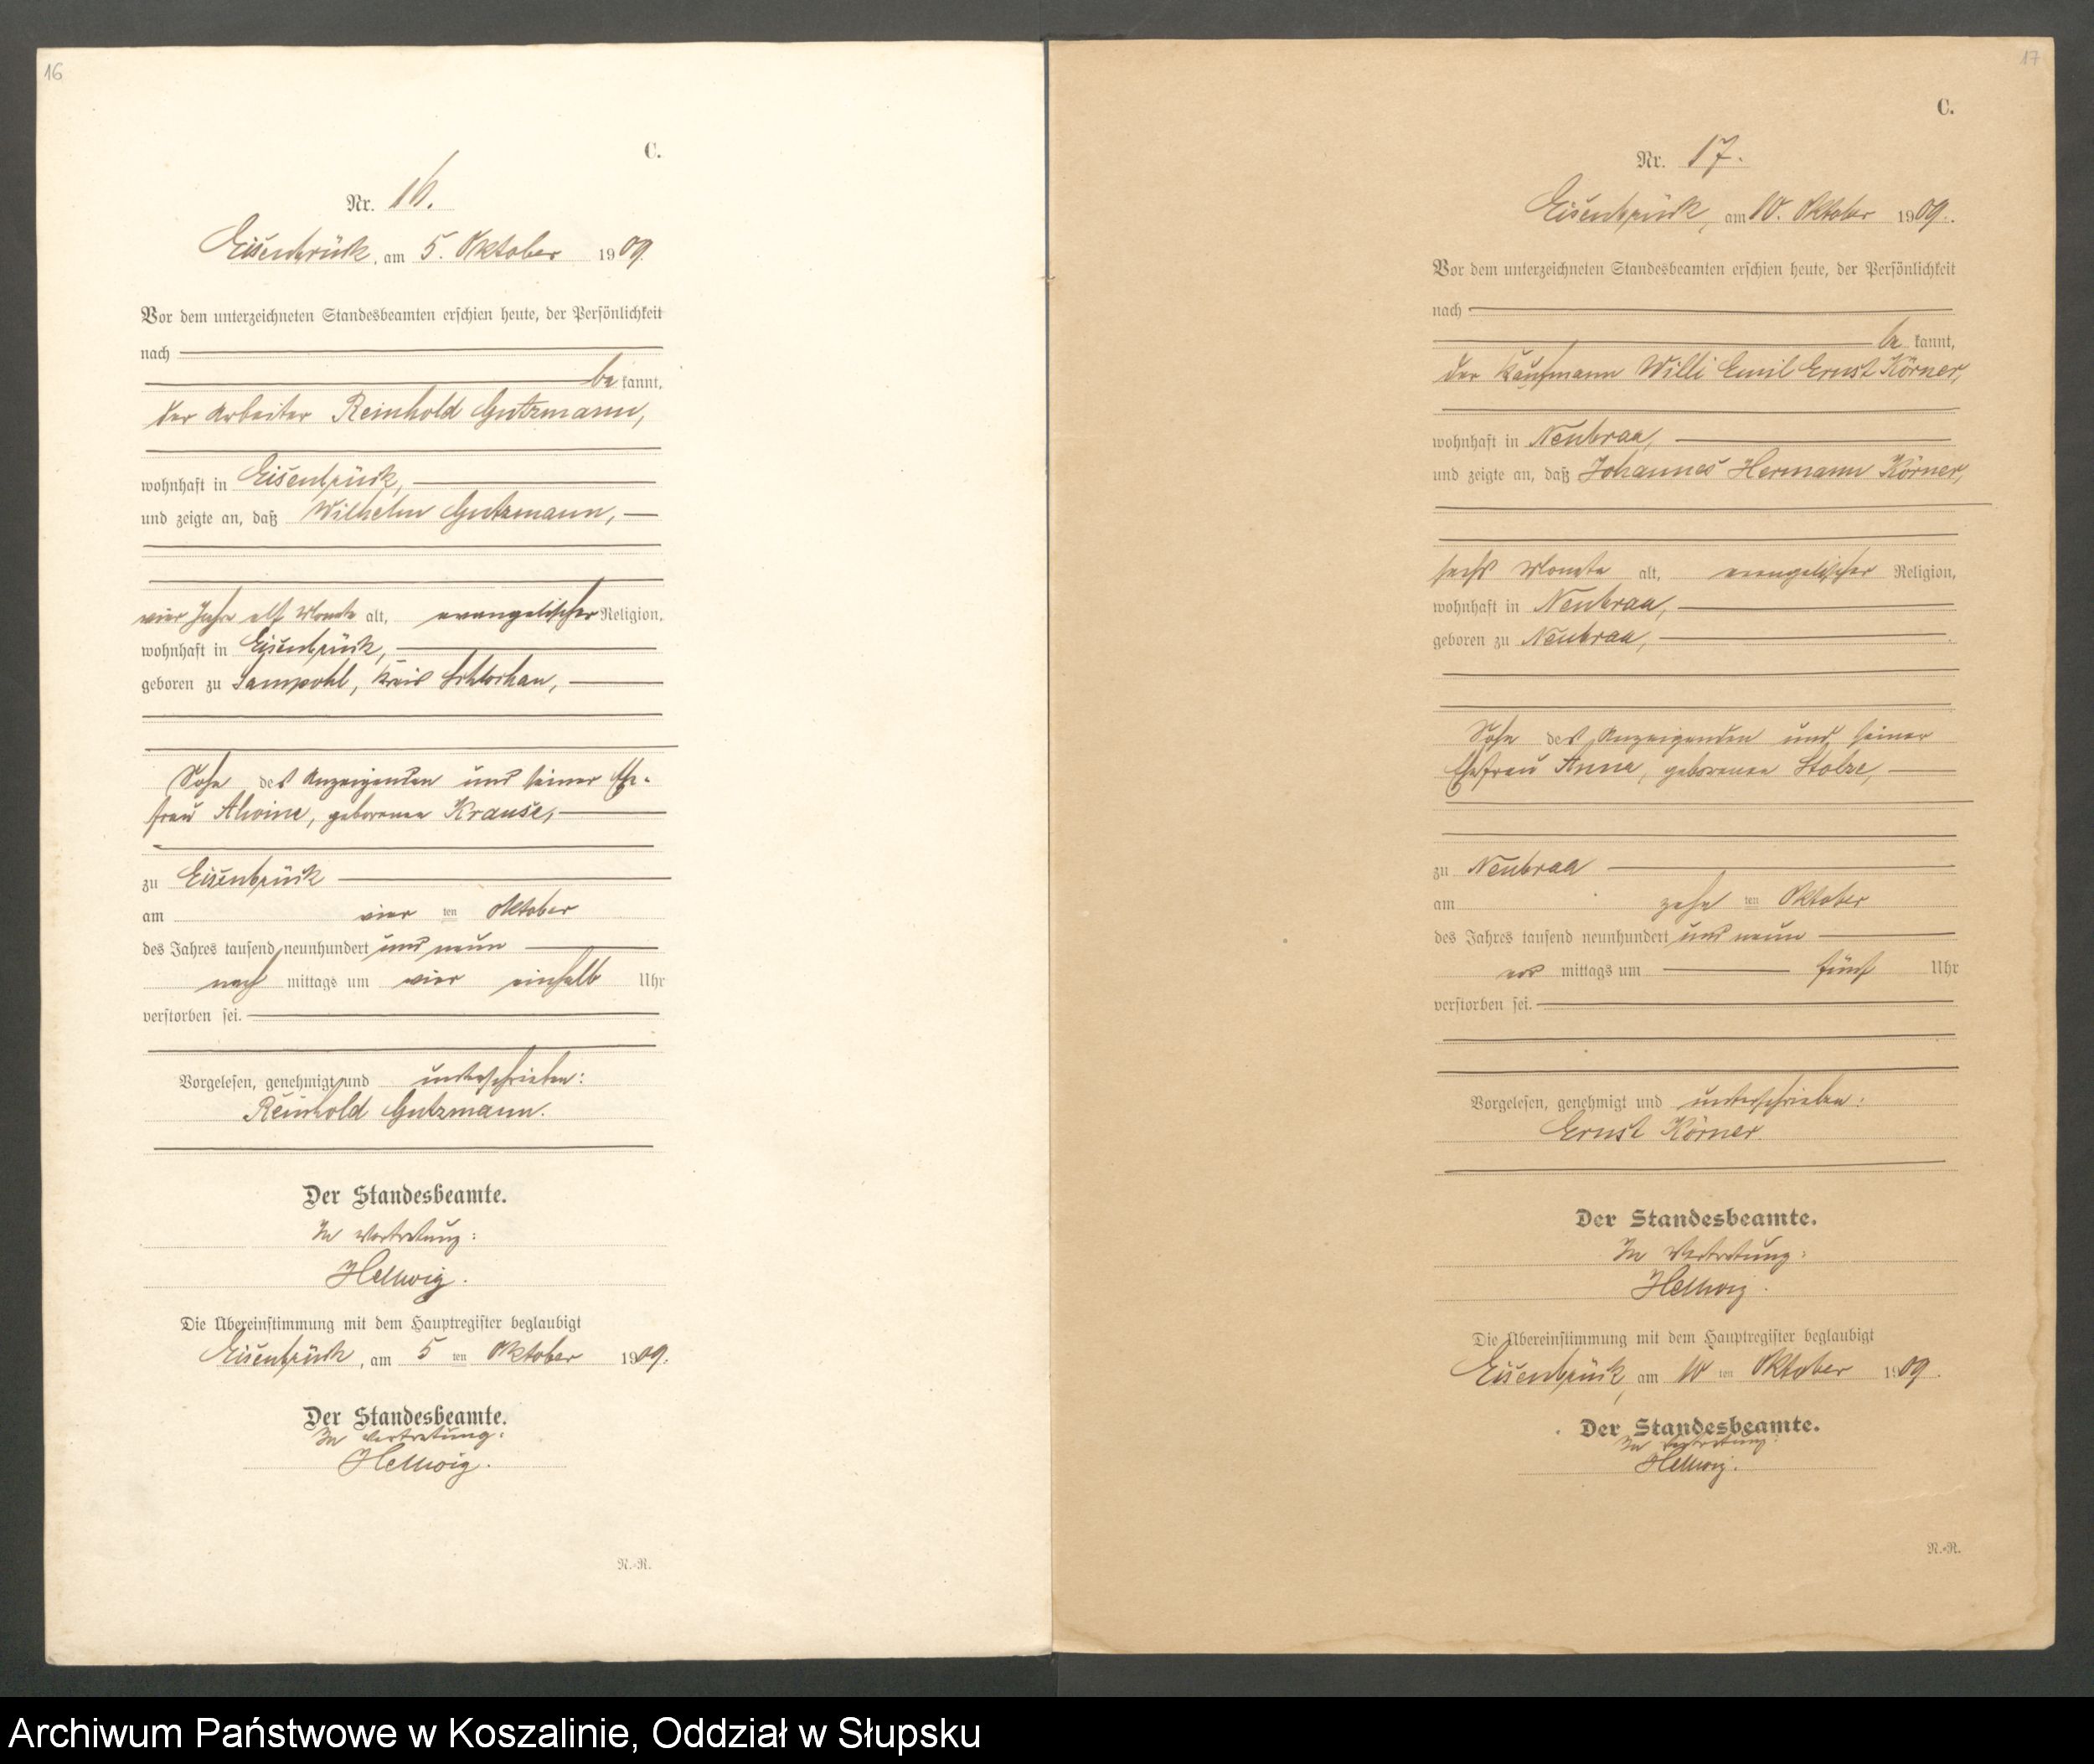 16
C.
Nr. 16.
Eisenbrück, am 5. Oktober 1909.
Vor dem unterzeichneten Standesbeamten erschien heute, der Persönlichkeit
nach
be kannt,
der Arbeiter Reinhold Gutzmann,
wohnhaft in Eisenbrück,
und zeigte an, daß Wilhelm Gutzmann,
vier Jahre elf Monate alt, evangelischer Religion,
wohnhaft in Eisenbrück,
geboren zu Sampohl, Kreis Schlochau,
Sohn des Anzeigenden und seiner Ehe-
frau Alwine, geborenen Krause,
zu Eisenbrück
am vier ten Oktober
des Jahres tausend neunhundert und neun
nach mittags um vier einhalb Uhr
verstorben sei.
Vorgelesen, genehmigt und unterschrieben:
Reinhold Gutzmann.
Der Standesbeamte.
In Vertretung:
Hellwig.
Die Übereinstimmung mit dem Hauptregister beglaubigt
Eisenbrück, am 5 ten Oktober 1909.
Der Standesbeamte.
In Vertretung:
Hellwig.
R.-R.
17
C.
Nr. 17.
Eisenbrück, am 10. Oktober 1909.
Vor dem unterzeichneten Standesbeamten erschien heute, der Persönlichkeit
nach
be kannt,
der Kaufmann Willi Emil Ernst Körner,
wohnhaft in Neubraa,
und zeigte an, daß Johannes Hermann Körner,
sechs Monate alt, evangelischer Religion,
wohnhaft in Neubraa,
geboren zu Neubraa,
Sohn des Anzeigenden und seiner
Ehefrau Anna, geborenen Stolze,
zu Neubraa
am zehn ten Oktober
des Jahres tausend neunhundert und neun
vor mittags um fünf Uhr
verstorben sei.
Vorgelesen, genehmigt und unterschrieben:
Ernst Körner.
Der Standesbeamte.
In Vertretung:
Hellwig.
Die Übereinstimmung mit dem Hauptregister beglaubigt
Eisenbrück, am 10 ten Oktober 1909.
Der Standesbeamte.
In Vertretung:
Hellwig.
R.-R.
Archiwum Państwowe w Koszalinie, Oddział w Słupsku